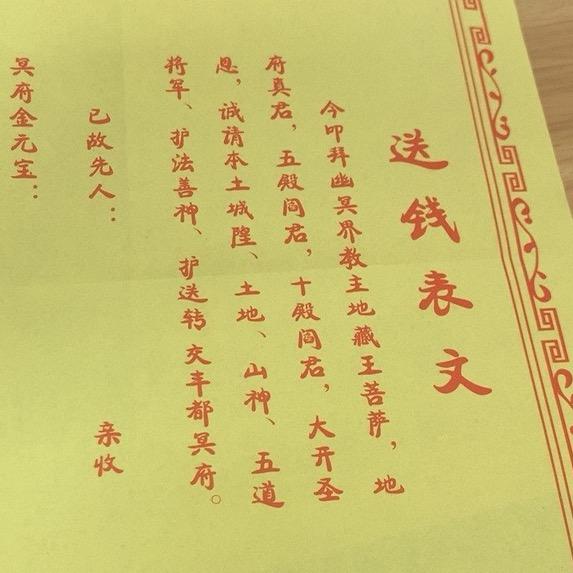 送钱表文
今叩拜幽冥界教主地藏王菩萨，地
府真君，五殿阎君，十殿阎君，大开圣
恩，诚请本土城隍、土地、山神、五道
将军、护法善神、护送转交丰都冥府。
已故先人：亲收
冥府金元宝：